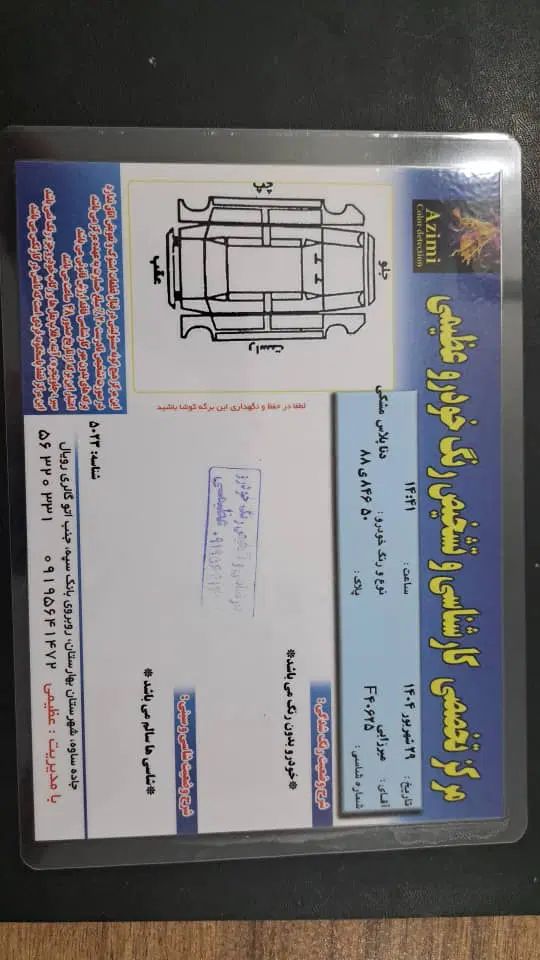 مرکز تخصصی کارشناسی و تشخیص رنگ خودرو عظیمی
Azimi
Color detection
تاریخ : ۲۹ شهریور ۱۴۰۴
ساعت : ۱۴:۴۱
آقای : میرزایی
نوع و رنگ خودرو : دنا پلاس مشکی
شماره شاسی : F۴۰۶۲۵
پلاک : ۵۰ ۸۴۶ ی ۸۸
جلو
عقب
چپ
راست
لطفا در حفظ و نگهداری این برگه کوشا باشید
شرح وضعیت رنگ شدگی :
*خودرو بدون رنگ می باشد*
شرح وضعیت شاسی و سینی :
* شاسی ها سالم می باشد *
شناسه: ۵۰۲۳
جاده ساوه، شهرستان بهارستان، روبروی بانک سپه، جنب اتو گالری رویال
با مدیریت : عظیمی ۰۹۱۹۵۶۴۱۴۷۲ ۵۶۳۲۰۳۳۱